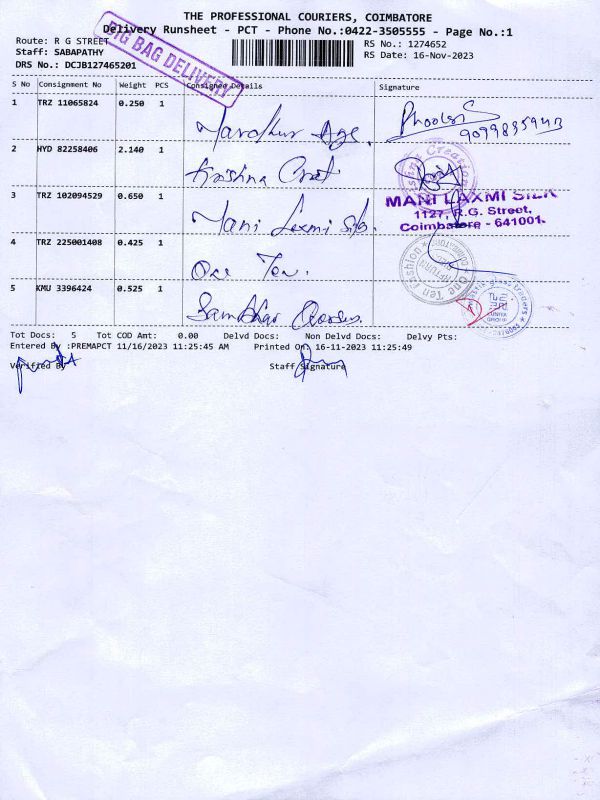 THE PROFESSIONAL COURIERS, COIMBATORE
Delivery Runsheet - PCT - Phone No.:0422-3505555 - Page No.:1
Route: R G STREET
RS No.: 1274652
Staff: SABAPATHY
RS Date: 16-Nov-2023
DRS No.: DCJB127465201
BIG BAG DELIVERY
S No Consignment No Weight PCS Consigned Details Signature
1 TRZ 11065824 0.250 1
9099835943
2 HYD 82258406 2.140 1 Krishna
3 TRZ 102094529 0.650 1 Mani Laxmi
MANI LAXMI SILK
1127, R.G. Street,
Coimbatore - 641001.
4 TRZ 225001408 0.425 1 One Ten.
One Ten Fashion
5 KMU 3396424 0.525 1
Tot Docs: 5 Tot COD Amt: 0.00 Delvd Docs: Non Delvd Docs: Delvy Pts:
Entered By :PREMAPCT 11/16/2023 11:25:45 AM Printed On: 16-11-2023 11:25:49
Verified By Staff Signature